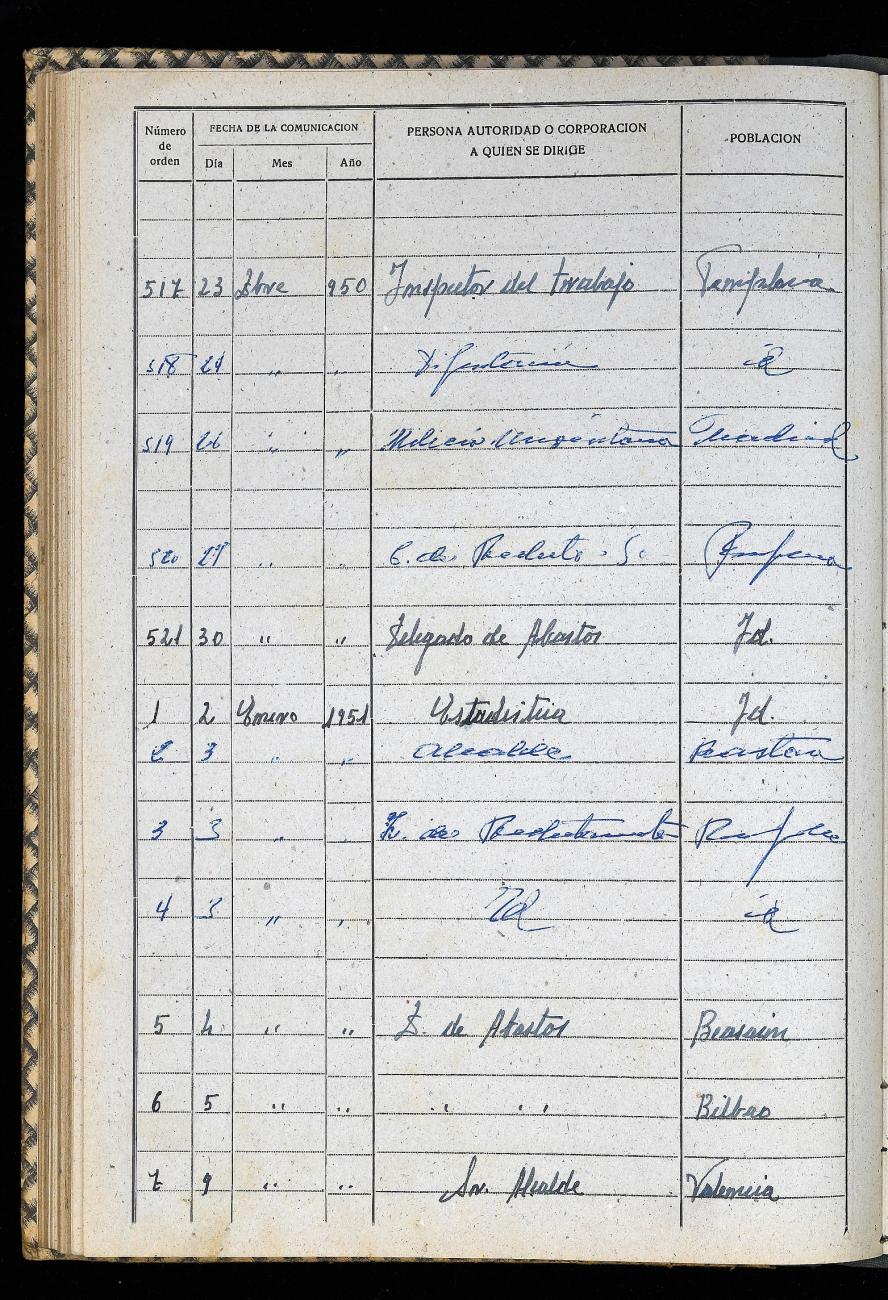 Número de orden FECHA DE LA COMUNICACION PERSONA AUTORIDAD O CORPORACION A QUIEN SE DIRIGE POBLACION
Día Mes Año
517 23 Dbre 950 Inspector del trabajo Pamplona
518 24 " " id
519 26 " " Madrid
520 27 " " C. de Recluta Pamplona
521 30 " " Delegado de Abastos Id.
1 2 Enero 1951 Estadistica Id.
2 3 " " Alcalde Baztan
3 3 " " Z. de Reclutamiento Pamplona
4 3 " " Id id
5 4 " " D. de Abastos Beasain
6 5 " " " " " Bilbao
7 9 " " Sr. Alcalde Valencia